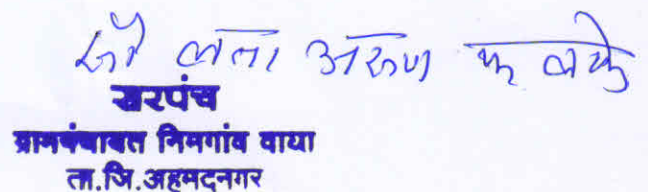 सौ लता अरुण फलके
सरपंच
ग्रामपंचायत निमगांव वाघा
ता.जि.अहमदनगर